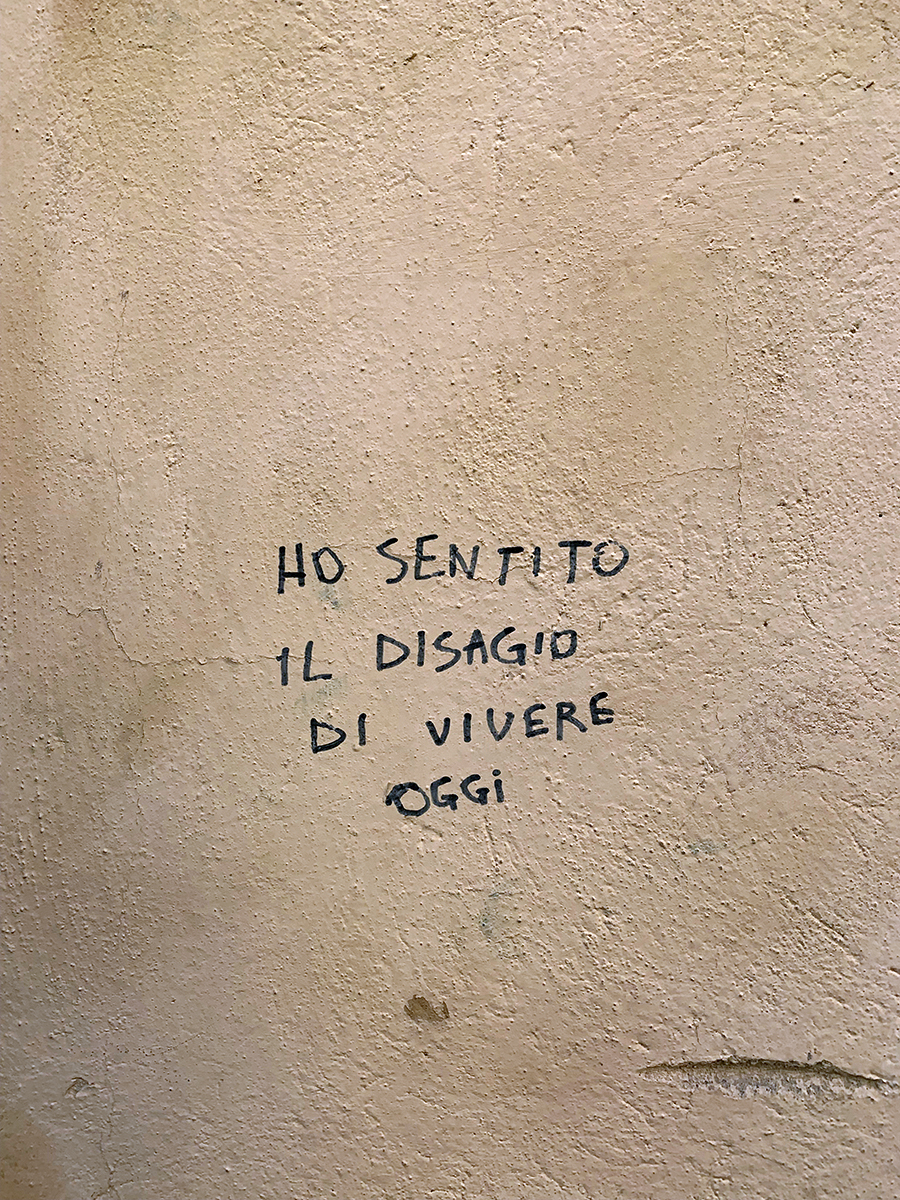 HO SENTITO
IL DISAGIO
DI VIVERE
OGGi